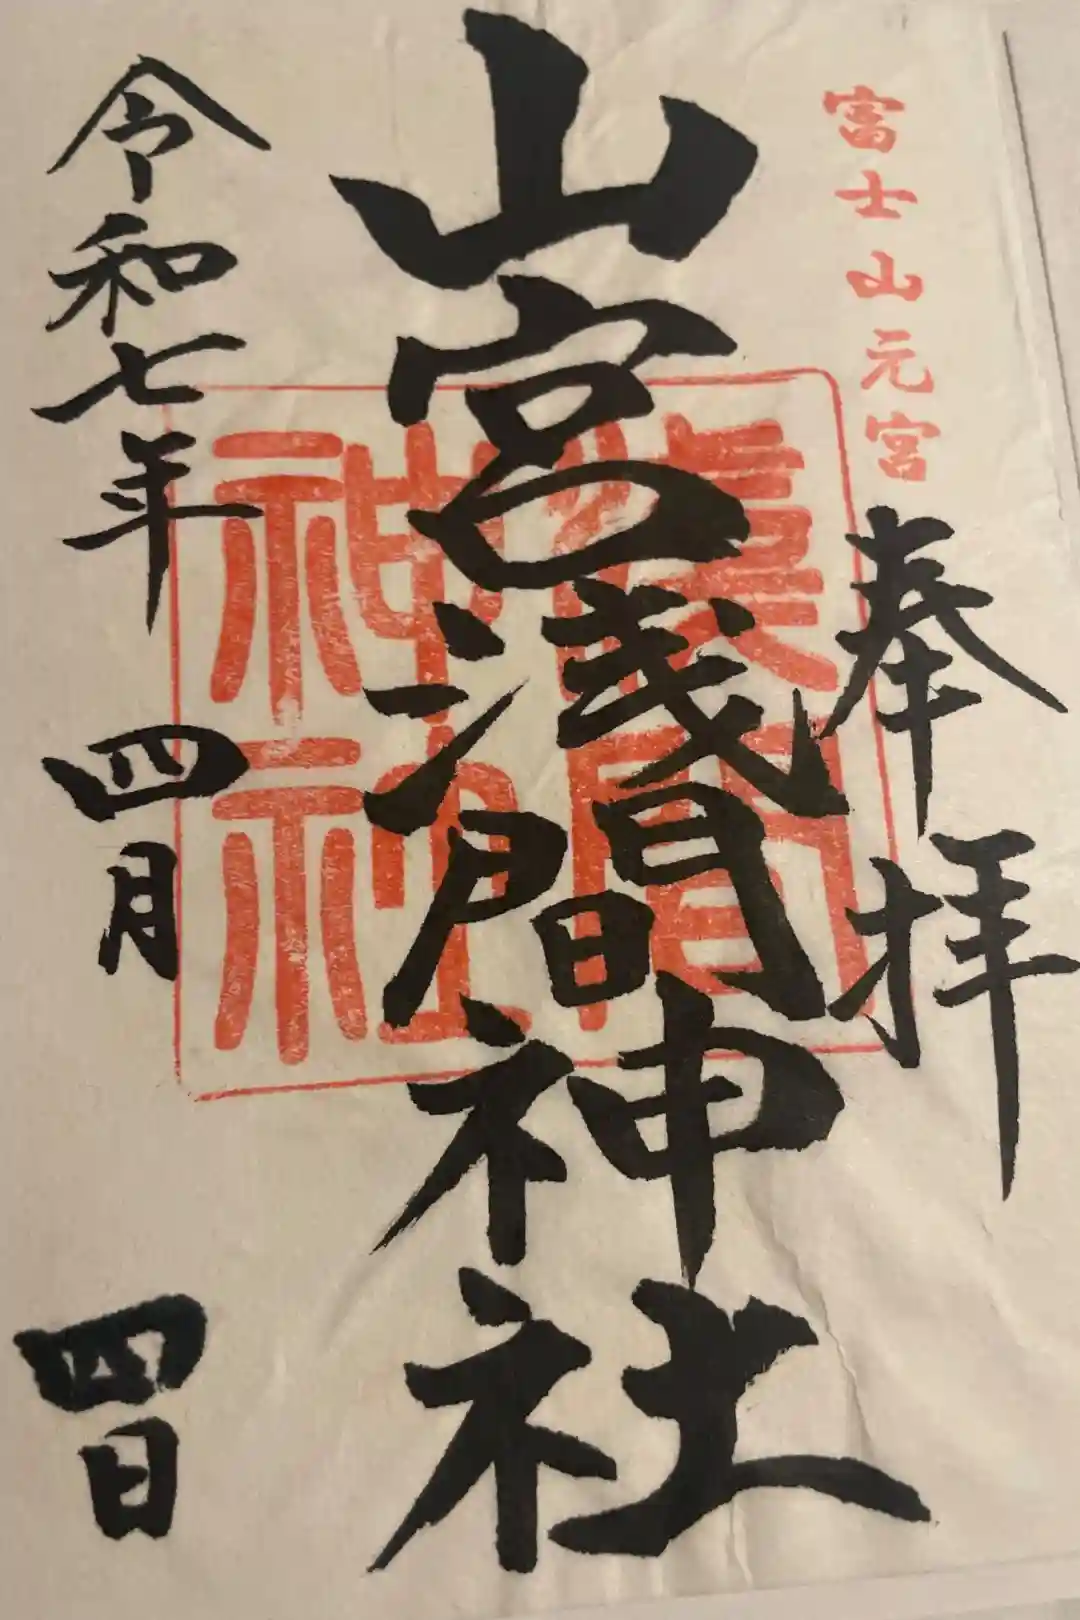 富士山元宮
奉拝
山宮浅間神社
浅間
神社
令和七年四月四日